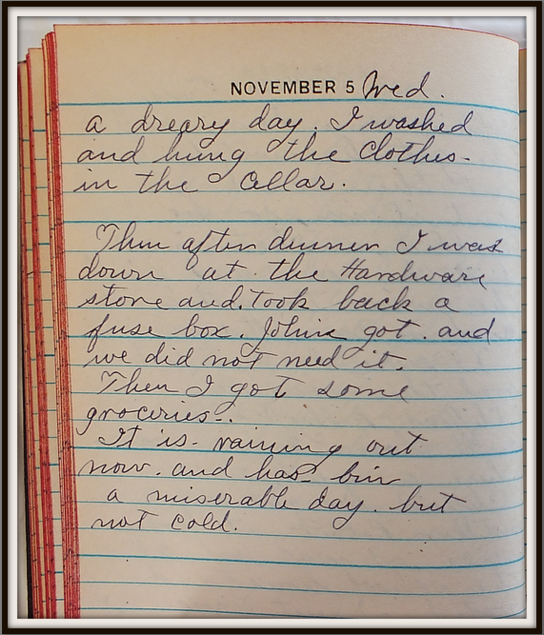 NOVEMBER 5 Wed.
a dreary day. I washed
and hung the clothes.
in the cellar.
Then after dinner I was
down at the Hardware
store and. took back a
fuse box. John got. and
we did not need it.
Then I got some
groceries.
It is raining out
now. and has bin
a miserable day. but
not cold.